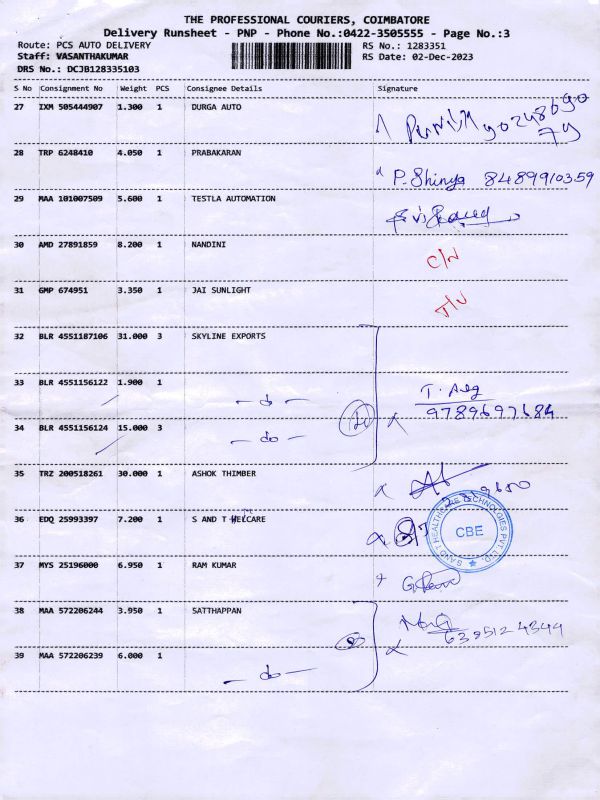 THE PROFESSIONAL COURIERS, COIMBATORE
Delivery Runsheet - PNP - Phone No.:0422-3505555 - Page No.:3
Route: PCS AUTO DELIVERY RS No.: 1283351
Staff: VASANTHAKUMAR RS Date: 02-Dec-2023
DRS No.: DCJB128335103
S No Consignment No Weight PCS Consignee Details Signature
27 IXM 505444907 1.300 1 DURGA AUTO
28 TRP 6248410 4.050 1 PRABAKARAN P. Shinya 8489910359
29 MAA 101007509 5.600 1 TESTLA AUTOMATION
30 AMD 27891859 8.200 1 NANDINI C/N
31 GMP 674951 3.350 1 JAI SUNLIGHT
32 BLR 4551187106 31.000 3 SKYLINE EXPORTS
33 BLR 4551156122 1.900 1 - do -
9789697684
34 BLR 4551156124 15.000 3 - do -
35 TRZ 200518261 30.000 1 ASHOK THIMBER
36 EDQ 25993397 7.200 1 S AND T HELCARE
SANDT HEALTHCARE TECHNOLOGIES PVT LTD
CBE
37 MYS 25196000 6.950 1 RAM KUMAR
38 MAA 572206244 3.950 1 SATTHAPPAN
6395124344
39 MAA 572206239 6.000 1 - do -